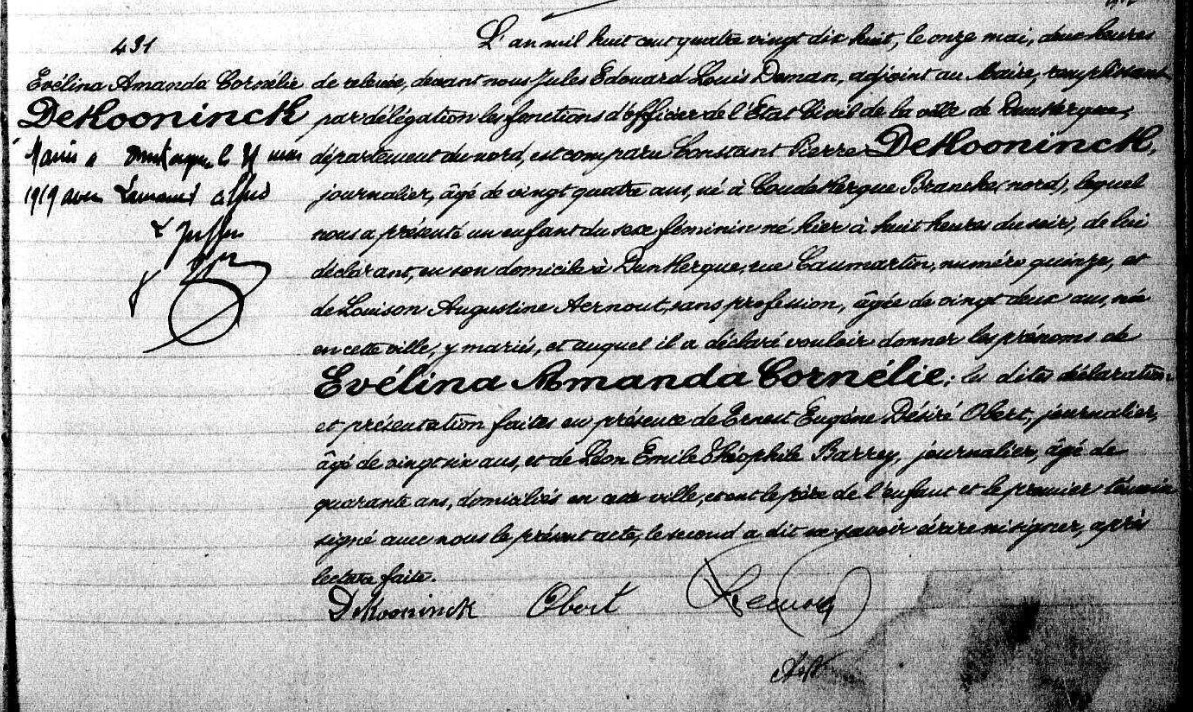 491
Evélina Amanda Cornélie
DeKooninck
Mariée à Dunkerque le 31 mai
1919 avec
L'an mil huit cent quatre vingt dix huit, le onze mai, deux heures
de relevée, devant nous Jules Edouard Louis Deman, adjoint au Maire, remplissant
par délégation les fonctions d'officier de l'Etat Civil de la ville de Dunkerque,
département du nord, est comparu Constant Pierre DeKooninck,
journalier, âgé de vingt quatre ans, né à CoudeKerque Branche (nord), lequel
nous a présenté un enfant du sexe féminin né hier à huit heures du soir, de lui
déclarant, en son domicile à DunKerque, rue Caumartin, numéro quinze, et
de Louison Augustine Aernout, sans profession, âgée de vingt deux ans, née
en cette ville, y mariés, et auquel il a déclaré vouloir donner les prénoms de
Evélina Amanda Cornélie; les dites déclaration
et présentation faites en présence de Ernest Eugène Désiré Obert, journalier,
âgé de vingt six ans, et de Léon Emile Théophile Barrey, journalier, âgé de
quarante ans, domiciliés en cette ville, et ont le père de l'enfant et le premier témoin
signé avec nous le présent acte, le second a dit ne savoir écrire ni signer, après
lecture faite.
DeKooninck Obert